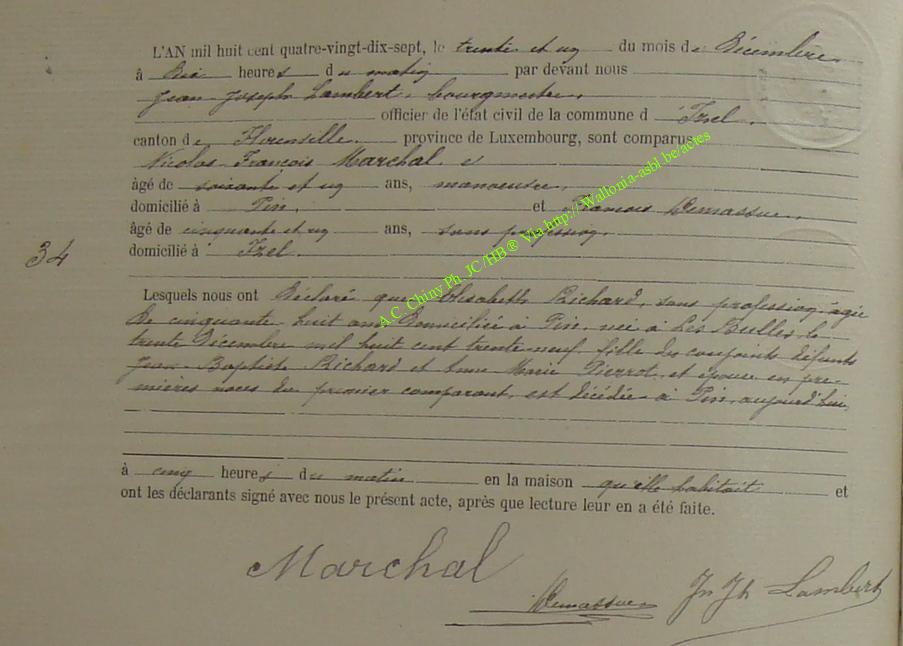 L'AN mil huit cent quatre-vingt-dix-sept, le trente et un du mois de Décembre
à dix heures du matin par devant nous
Jean Joseph Lambert, bourgmestre,
officier de l'état civil de la commune d'Izel,
canton de Florenville, province de Luxembourg, sont comparus
Nicolas François Marchal,
âgé de soixante et un ans, manoeuvre,
domicilié à Pin, et François Demassue,
âgé de cinquante et un ans, sans profession,
domicilié à Izel.
34
Lesquels nous ont déclaré que Elisabeth Richard, sans profession, âgée
de cinquante huit ans, domiciliée à Pin, née à Les Bulles, le
trente Décembre mil huit cent trente-neuf, fille des conjoints défunts
Jean-Baptiste Richard et Marie Pierrot, et épouse en pre-
mières noces du premier comparant, est décédée à Pin, aujourd'hui,
à cinq heures du matin en la maison qu'elle habitait et
ont les déclarants signé avec nous le présent acte, après que lecture leur en a été faite.
Marchal
Demassue Jn Jh Lambert
A.C. Chiny Ph. JC/HB® Via http://Wallonia-asbl.be/actes